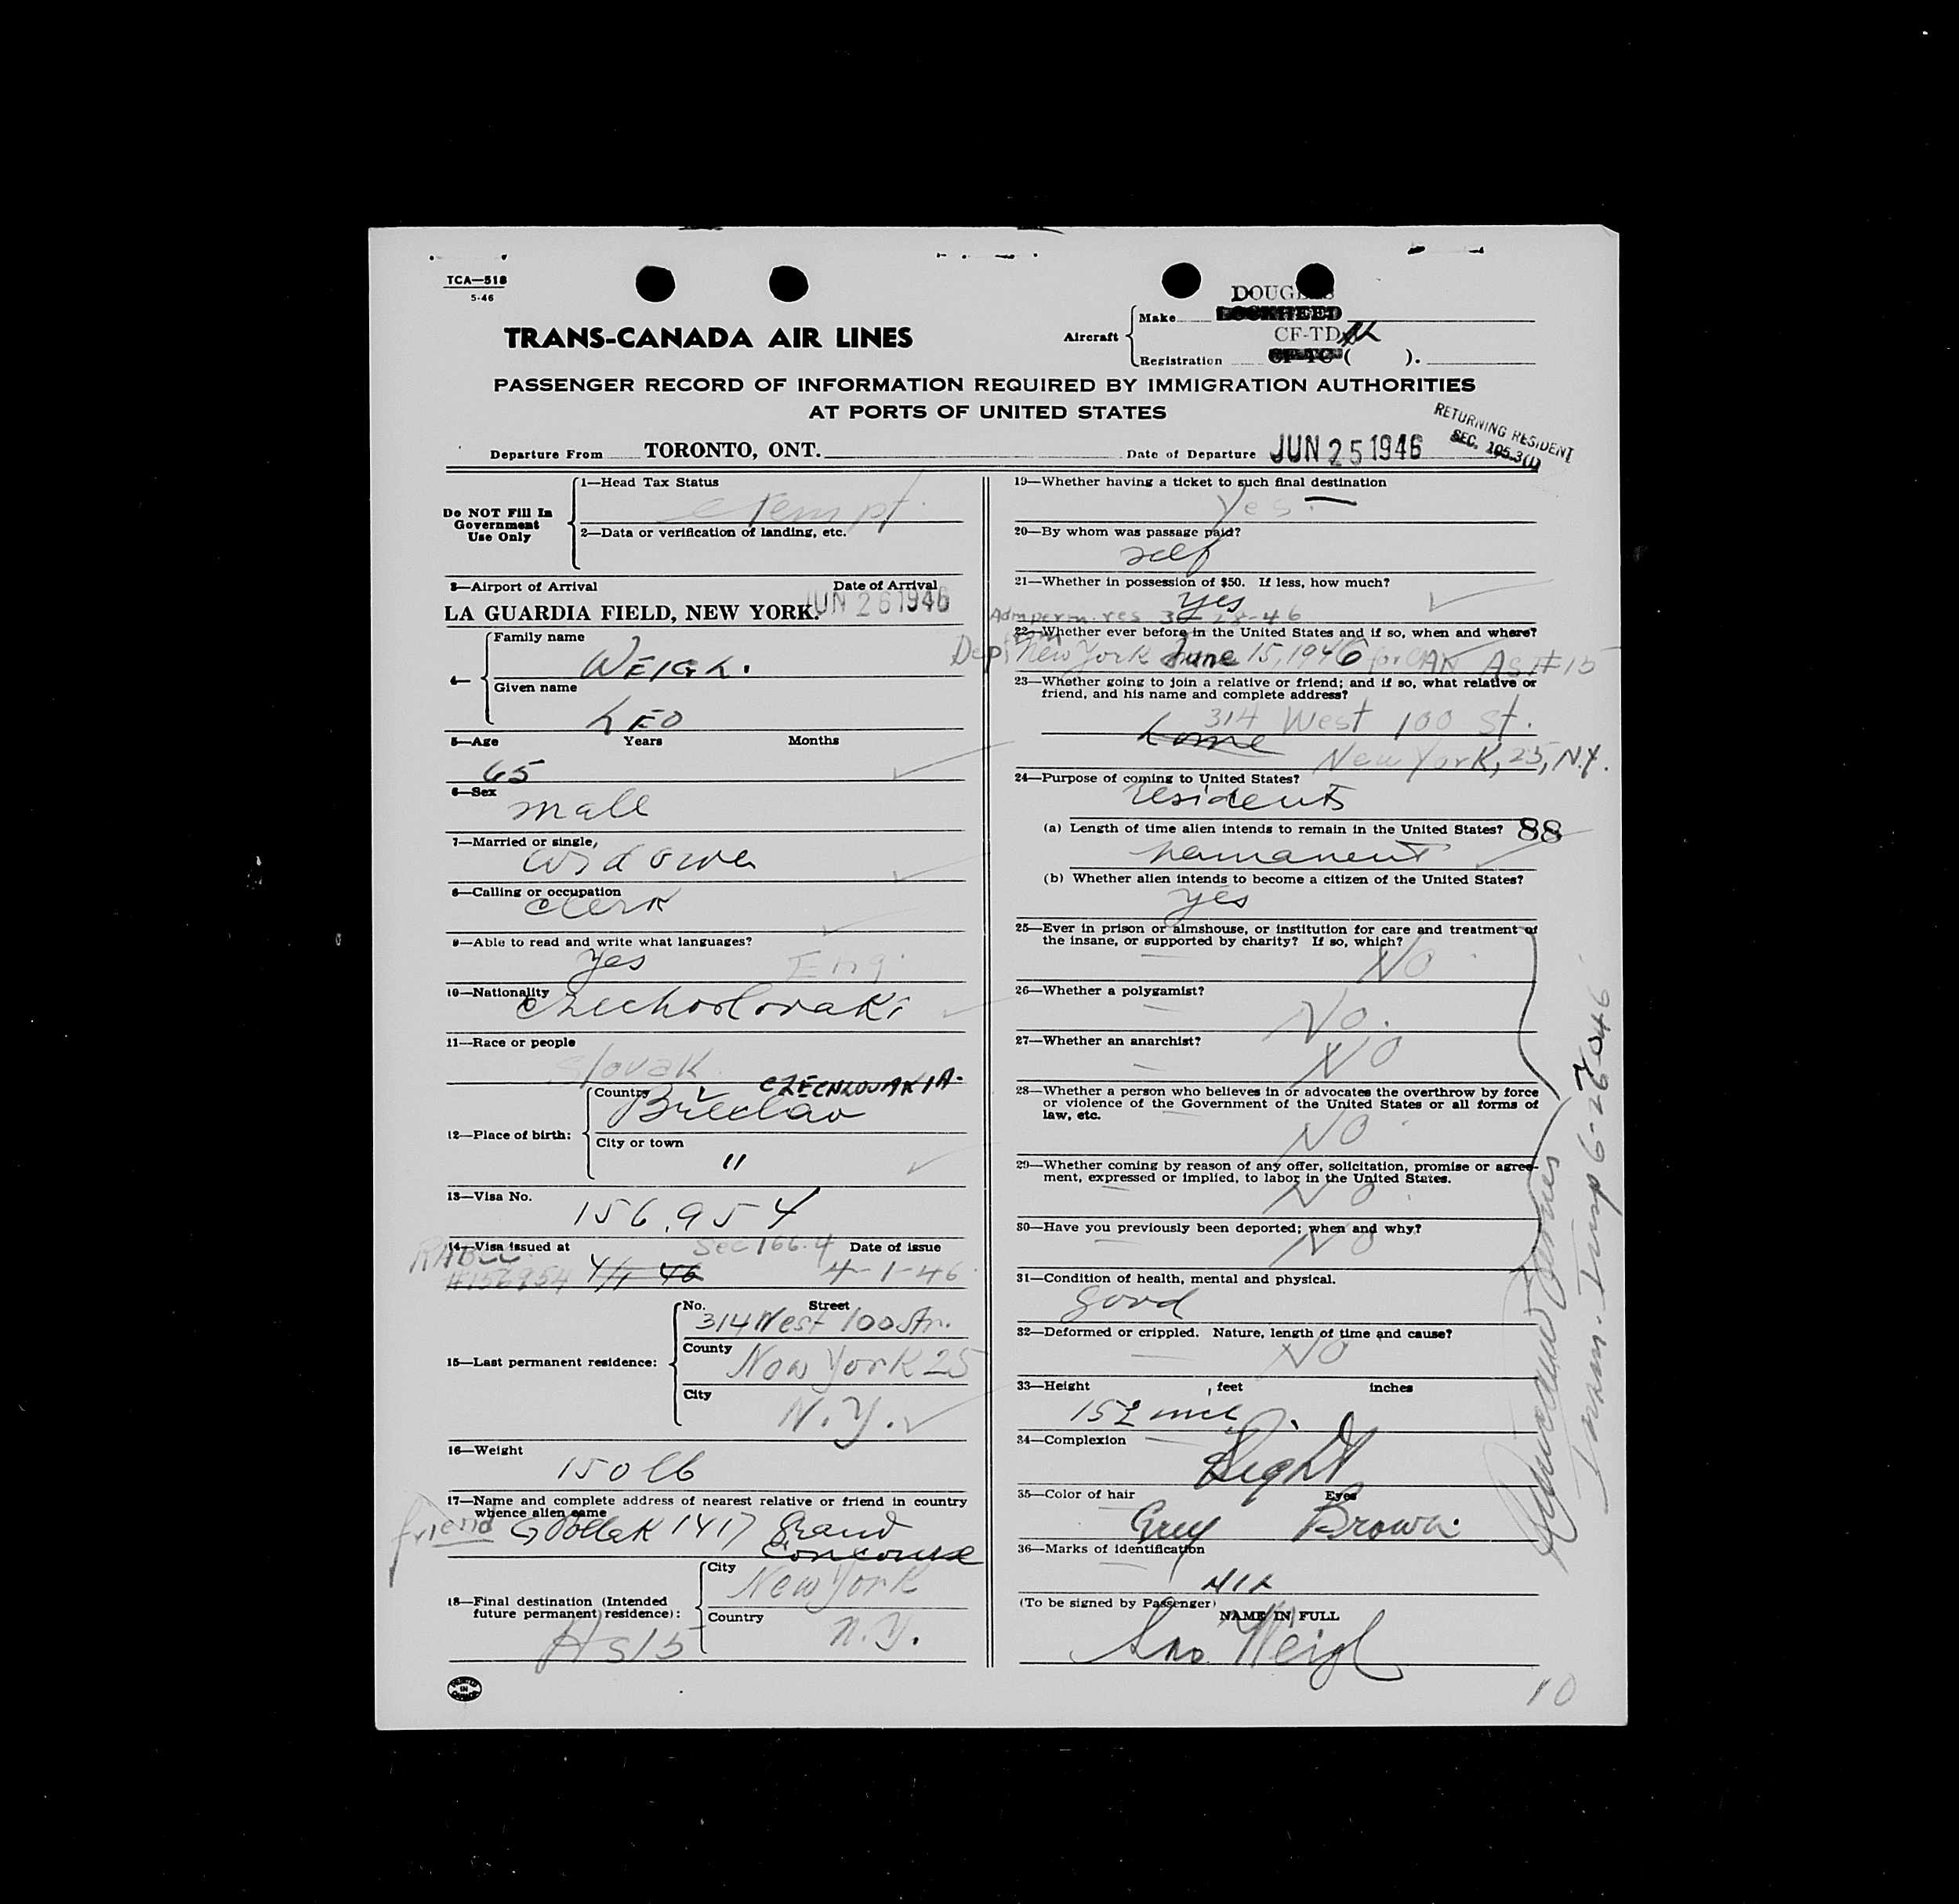 TCA—518
5-46
DOUGLAS
Make LOCKHEED
TRANS-CANADA AIR LINES
Aircraft
CF-TD
Registration CF-TC ( ).
PASSENGER RECORD OF INFORMATION REQUIRED BY IMMIGRATION AUTHORITIES
AT PORTS OF UNITED STATES
RETURNING RESIDENT
SEC. 105.3(1)
Departure From TORONTO, ONT.
Date of Departure JUN 25 1946
Do NOT Fill In
Government
Use Only
1—Head Tax Status
exempt
2—Data or verification of landing, etc.
3—Airport of Arrival Date of Arrival
LA GUARDIA FIELD, NEW YORK. JUN 26 1946
4— Family name
WEIGL.
Given name
LEO
5—Age Years Months
65
6—Sex
male
7—Married or single,
widower
8—Calling or occupation
clerk
9—Able to read and write what languages?
yes Eng.
10—Nationality
Czechoslovaki
11—Race or people
Slovak
12—Place of birth:
Country CZECHLOVAKIA.
Břeclav
City or town
"
13—Visa No.
156.954
14—Visa issued at Sec 166.4 Date of issue
#156954 4/1 46 4-1-46
15—Last permanent residence:
No. Street
314 West 100 Str.
County
New York 25
City
N.Y.
16—Weight
150 lb
17—Name and complete address of nearest relative or friend in country
whence alien came
friend G Pollak 1417 Grand
Concourse
18—Final destination (Intended
future permanent residence):
City
New York
Country
N.Y.
As15
PRINTED
IN
CANADA
19—Whether having a ticket to such final destination
Yes.
20—By whom was passage paid?
self
21—Whether in possession of $50. If less, how much?
yes
Adm perm. res 3-28-46
22—Whether ever before in the United States and if so, when and where?
Dep. New York June 15, 1946 for CAN AS #15
23—Whether going to join a relative or friend; and if so, what relative or
friend, and his name and complete address?
314 West 100 St.
home
New York, 25, N.Y.
24—Purpose of coming to United States?
residents
(a) Length of time alien intends to remain in the United States? 88
permanent
(b) Whether alien intends to become a citizen of the United States?
yes
25—Ever in prison or almshouse, or institution for care and treatment of
the insane, or supported by charity? If so, which?
No
26—Whether a polygamist?
No.
27—Whether an anarchist?
No
28—Whether a person who believes in or advocates the overthrow by force
or violence of the Government of the United States or all forms of
law, etc.
No
29—Whether coming by reason of any offer, solicitation, promise or agree-
ment, expressed or implied, to labor in the United States.
No
30—Have you previously been deported; when and why?
No
31—Condition of health, mental and physical.
good
32—Deformed or crippled. Nature, length of time and cause?
No
33—Height , feet inches
152
34—Complexion
Light
35—Color of hair Eyes
Grey Brown.
36—Marks of identification
NIL
(To be signed by Passenger)
NAME IN FULL
Leo Weigl
Imm. Insp 6-26-1946
10